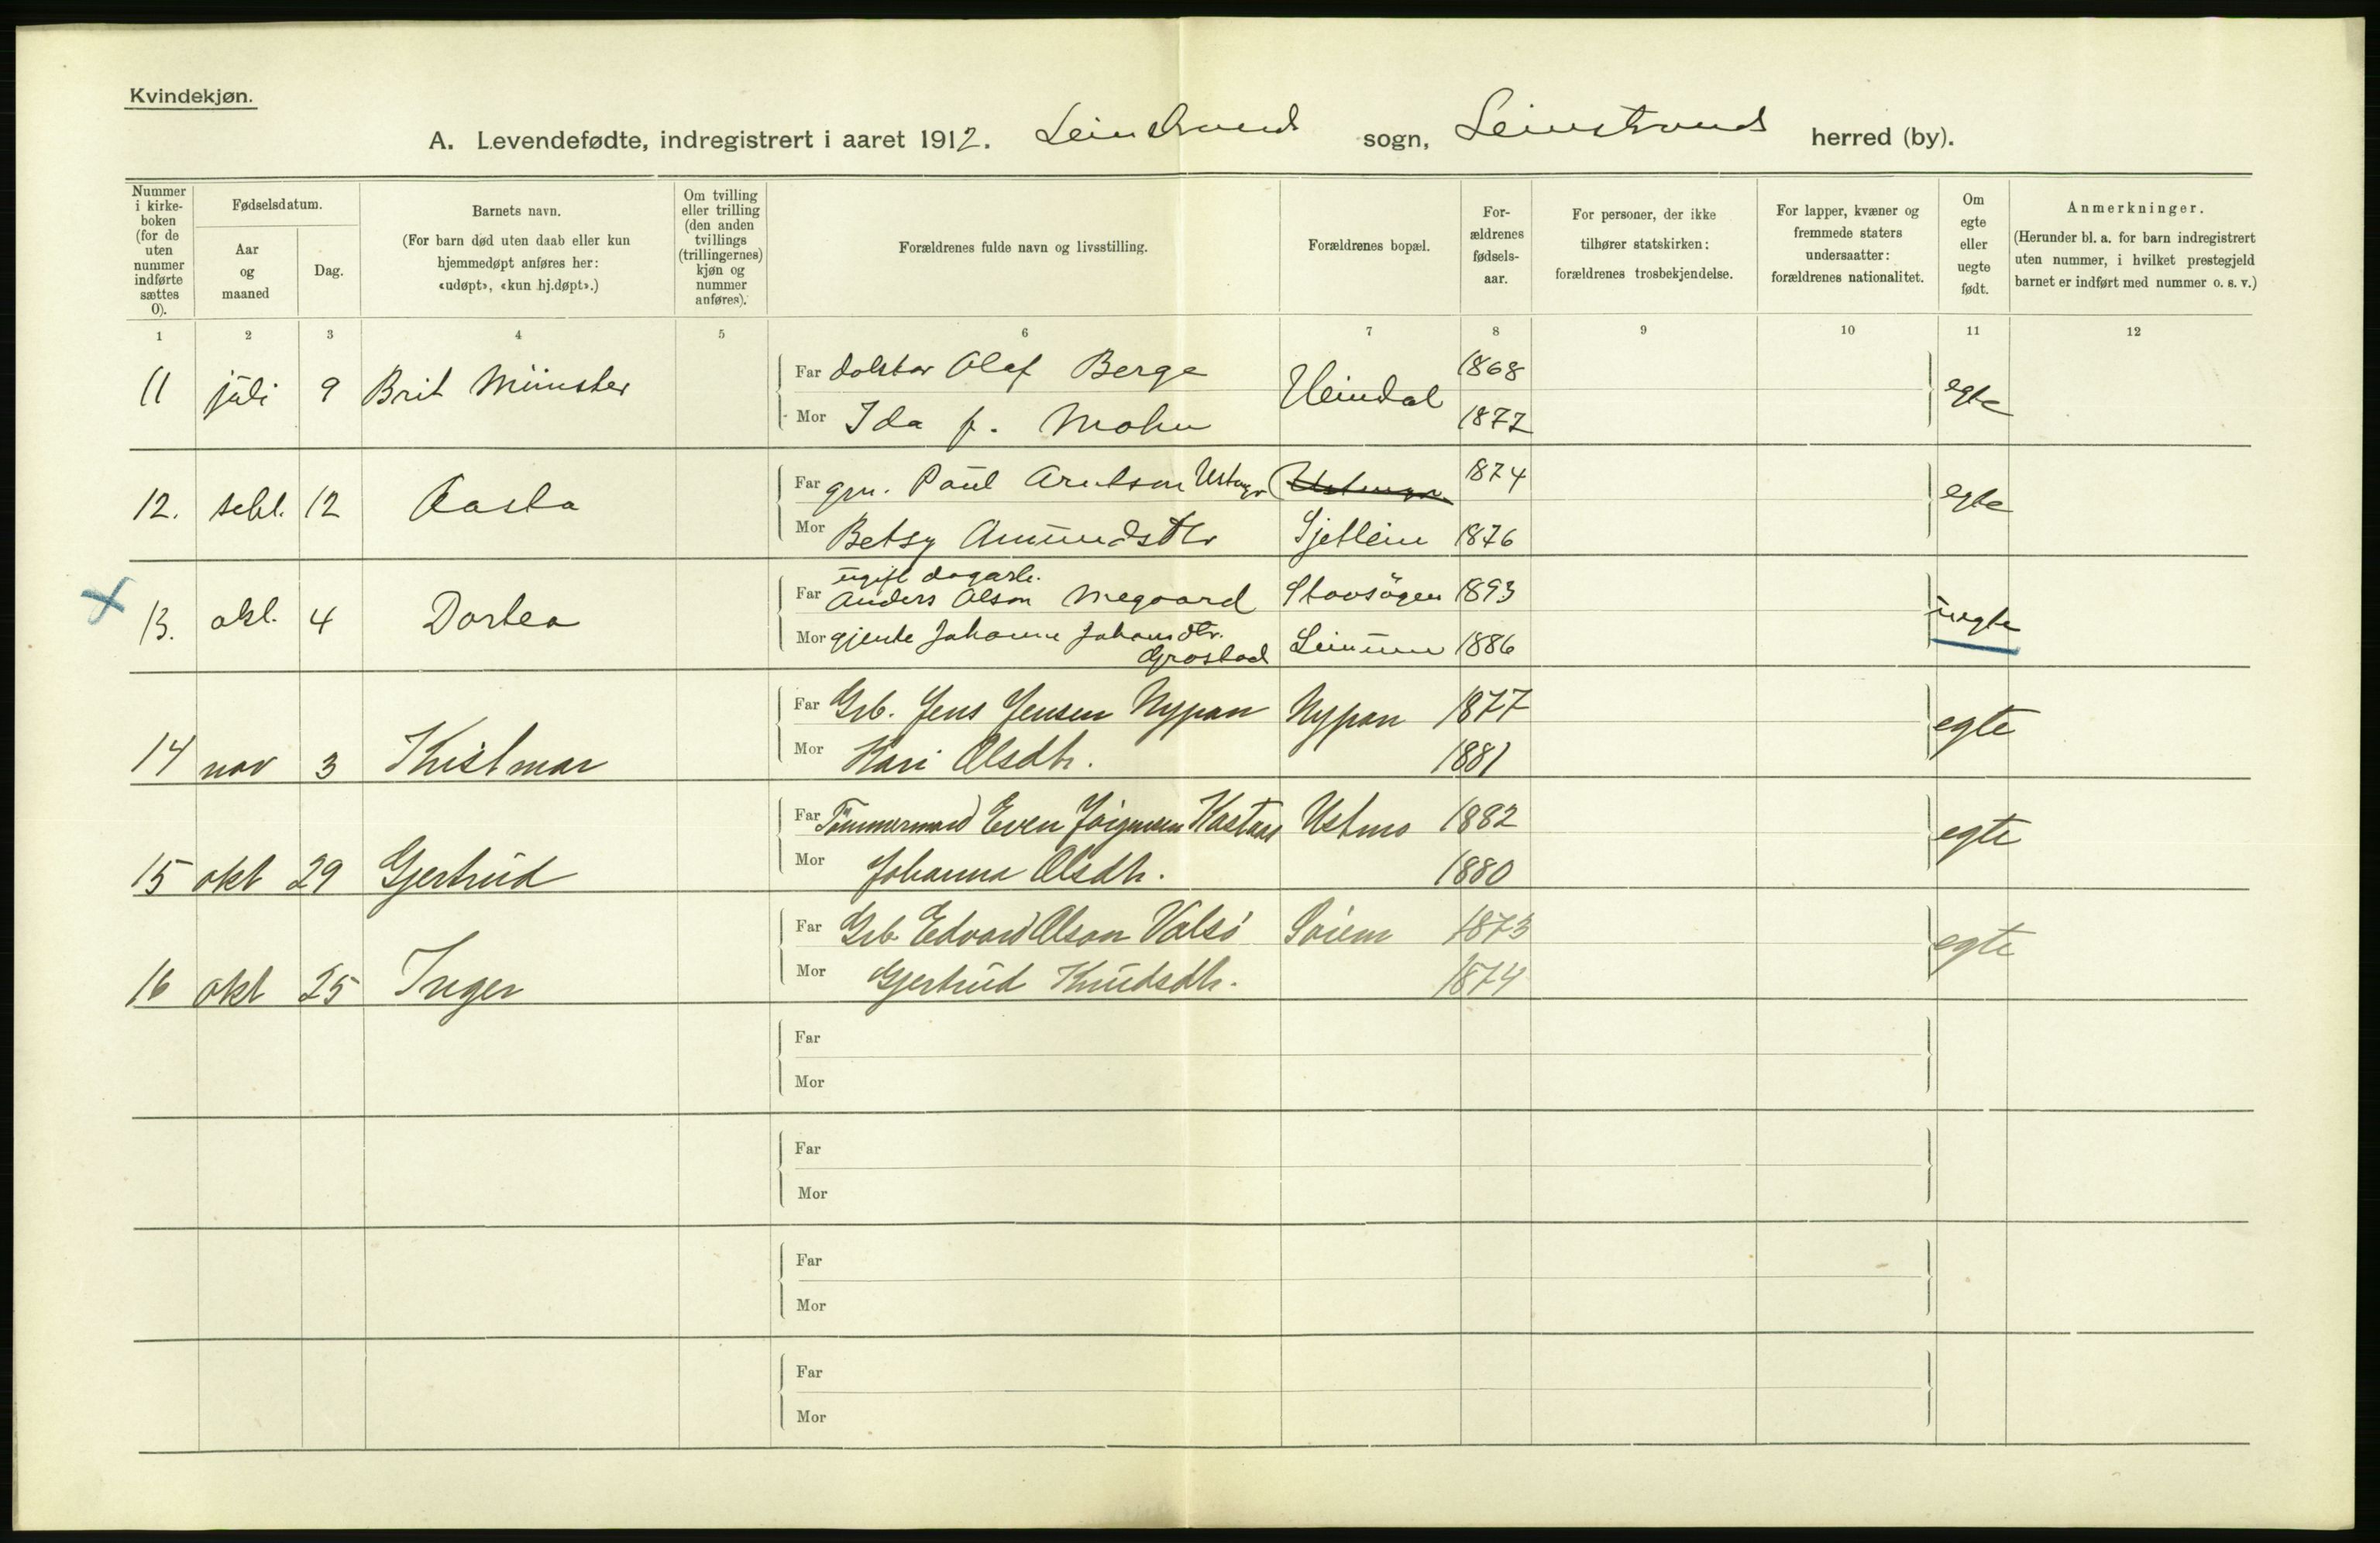 Kvindekjøn.
A. Levendefødte, indregistrert i aaret 1912. Leinstrand sogn, Leinstrand herred (by).
Nummer i kirke-boken (for de uten nummer indførte sættes 0).
Fødselsdatum.
Aar og maaned
Dag.
Barnets navn.
(For barn død uten daab eller kun hjemmedøpt anføres her: «udøpt», «kun hj.døpt».)
Om tvilling eller trilling (den anden tvillings (trillingernes) kjøn og nummer anføres).
Forældrenes fulde navn og livsstilling.
Forældrenes bopæl.
For-ældrenes fødsels-aar.
For personer, der ikke tilhører statskirken: forældrenes trosbekjendelse.
For lapper, kvæner og fremmede staters undersaatter: forældrenes nationalitet.
Om egte eller uegte født.
Anmerkninger.
(Herunder bl. a. for barn indregistrert uten nummer, i hvilket prestegjeld barnet er indført med nummer o. s. v.)
1 2 3 4 5 6 7 8 9 10 11 12
11 juli 9 Brit Münster Far doktor Olaf Berge Heimdal 1868 egte
Mor Ida f. Mohn 1877
12. sebt. 12 Aasta Far grn. Paul Arntsen 1874 egte
Mor Betsy Amundsdtr Sjetlein 1876
ugift dagarb.
13. okt. 4 Dortea Far Anders Olsen Megaard 1893 uegte
Mor gjente Johanna Johansdtr. Leinum 1886
Grostad
14 nov 3 Kristmar Far Grb. Jens Jensen Nypan Nypan 1877 egte
Mor Kari Olsdtr. 1881
15 okt 29 Gjertrud Far Tømmermand Even Ustmo 1882 egte
Mor Johanna Olsdtr. 1880
16 okt 25 Inger Far Grb. Edvard Olsen Valsö 1873 egte
Mor Gjertrud Knudsdtr. 1874
Far
Mor
Far
Mor
Far
Mor
Far
Mor